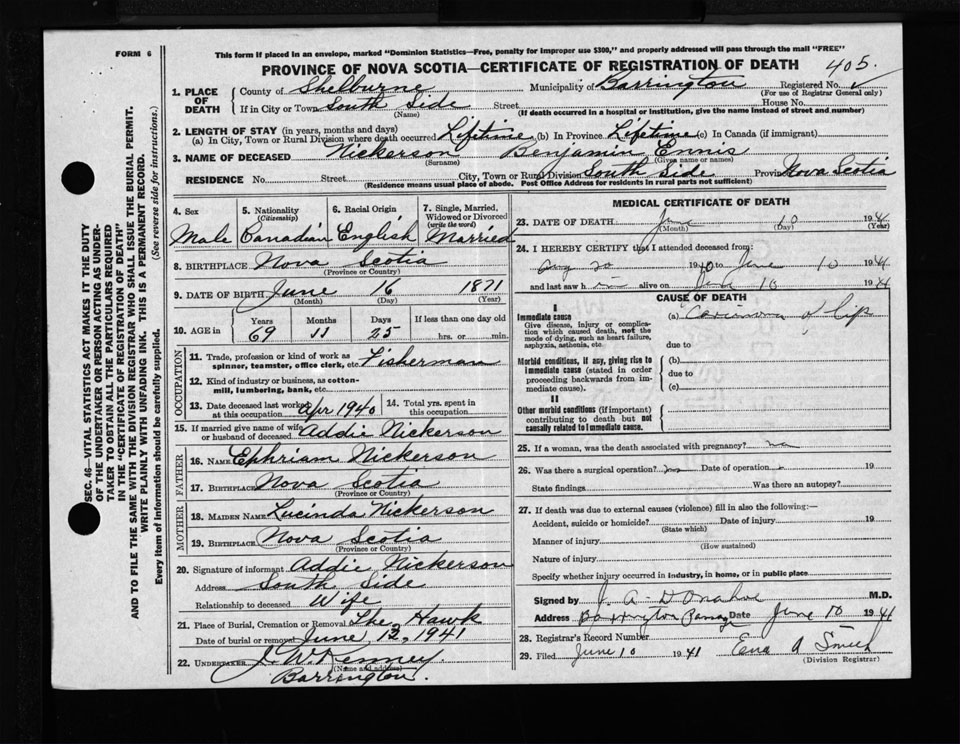 FORM 6
This form if placed in an envelope, marked "Dominion Statistics—Free, penalty for improper use $300," and properly addressed will pass through the mail "FREE"
PROVINCE OF NOVA SCOTIA—CERTIFICATE OF REGISTRATION OF DEATH
405.
1. PLACE OF DEATH
County of Shelburne Municipality of Barrington Registered No.
(For use of Registrar General only)
If in City or Town South Side Street House No.
(Name) (If death occurred in a hospital or institution, give the name instead of street and number)
2. LENGTH OF STAY (in years, months and days)
(a) In City, Town or Rural Division where death occurred Lifetime (b) In Province Lifetime (c) In Canada (if immigrant)
3. NAME OF DECEASED Nickerson Benjamin Ennis
(Surname) (Given name or names)
RESIDENCE No. Street City, Town or Rural Division South Side Province Nova Scotia
(Residence means usual place of abode. Post Office Address for residents in rural parts not sufficient)
4. Sex Male
5. Nationality (Citizenship) Canadian
6. Racial Origin English
7. Single, Married, Widowed or Divorced (write the word) Married
8. BIRTHPLACE Nova Scotia
(Province or Country)
9. DATE OF BIRTH June 16 1871
(Month) (Day) (Year)
10. AGE in Years Months Days If less than one day old
69 11 25 hrs. or min.
OCCUPATION
11. Trade, profession or kind of work as spinner, teamster, office clerk, etc. Fisherman
12. Kind of industry or business, as cotton-mill, lumbering, bank, etc.
13. Date deceased last worked at this occupation Apr 1940
14. Total yrs. spent in this occupation
15. If married give name of wife or husband of deceased Addie Nickerson
FATHER
16. NAME Ephriam Nickerson
17. BIRTHPLACE Nova Scotia
(Province or Country)
MOTHER
18. MAIDEN NAME Lucinda Nickerson
19. BIRTHPLACE Nova Scotia
(Province or Country)
20. Signature of informant Addie Nickerson
Address South Side
Relationship to deceased Wife
21. Place of Burial, Cremation or Removal The Hawk
Date of burial or removal June 12, 1941
22. UNDERTAKER J. W. Kenney
(Name and address)
Barrington.
MEDICAL CERTIFICATE OF DEATH
23. DATE OF DEATH June 10 194
(Month) (Day) (Year)
24. I HEREBY CERTIFY that I attended deceased from:
Aug 20 1940 to June 10 1941
and last saw h im alive on June 10 1941
CAUSE OF DEATH
I
Immediate cause
Give disease, injury or complication which caused death, not the mode of dying, such as heart failure, asphyxia, asthenia, etc.
(a) Carcinoma of lip
due to
Morbid conditions, if any, giving rise to immediate cause (stated in order proceeding backwards from immediate cause).
(b)
due to
(c)
II
Other morbid conditions (if important) contributing to death but not causally related to immediate cause.
25. If a woman, was the death associated with pregnancy? no
26. Was there a surgical operation? Date of operation 19
State findings Was there an autopsy?
27. If death was due to external causes (violence) fill in also the following:—
Accident, suicide or homicide? Date of injury 19
(State which)
Manner of injury
(How sustained)
Nature of injury
Specify whether injury occurred in industry, in home, or in public place
Signed by J. A. Donahoe M.D.
Address Barrington Passage Date June 10 1941
28. Registrar's Record Number
29. Filed June 10 1941 Ena A Smith
(Division Registrar)
SEC. 46—VITAL STATISTICS ACT MAKES IT THE DUTY
OF THE UNDERTAKER OR PERSON ACTING AS UNDER-
TAKER TO OBTAIN ALL THE PARTICULARS REQUIRED
IN THE "CERTIFICATE OF REGISTRATION OF DEATH"
AND TO FILE THE SAME WITH THE DIVISION REGISTRAR WHO SHALL ISSUE THE BURIAL PERMIT.
WRITE PLAINLY WITH UNFADING INK. THIS IS A PERMANENT RECORD.
Every item of information should be carefully supplied. (See reverse side for instructions.)